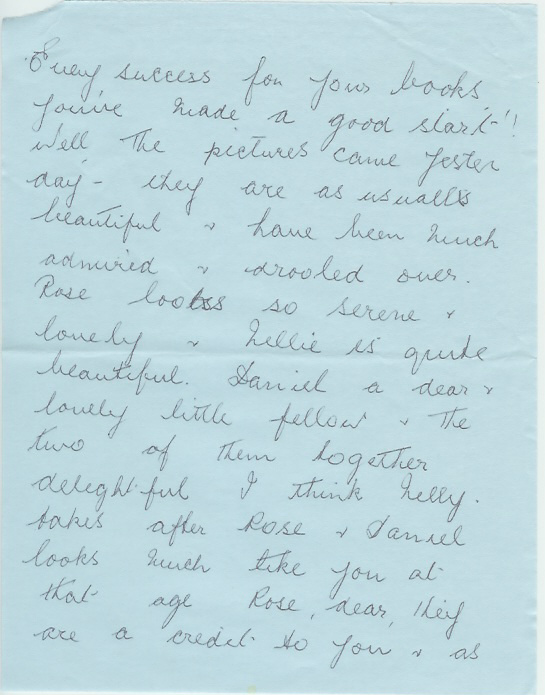 Every success for your books
you've made a good start!!
Well the pictures came yester
day - they are as usualls
beautiful & have been much
admired & drooled over.
Rose looks so serene &
lovely & Nellie is quite
beautiful. Daniel a dear &
lovely little fellow & the
two of them together
delightful I think Nelly.
takes after Rose & Daniel
looks much like you at
that age Rose, dear, they
are a credit to you & as